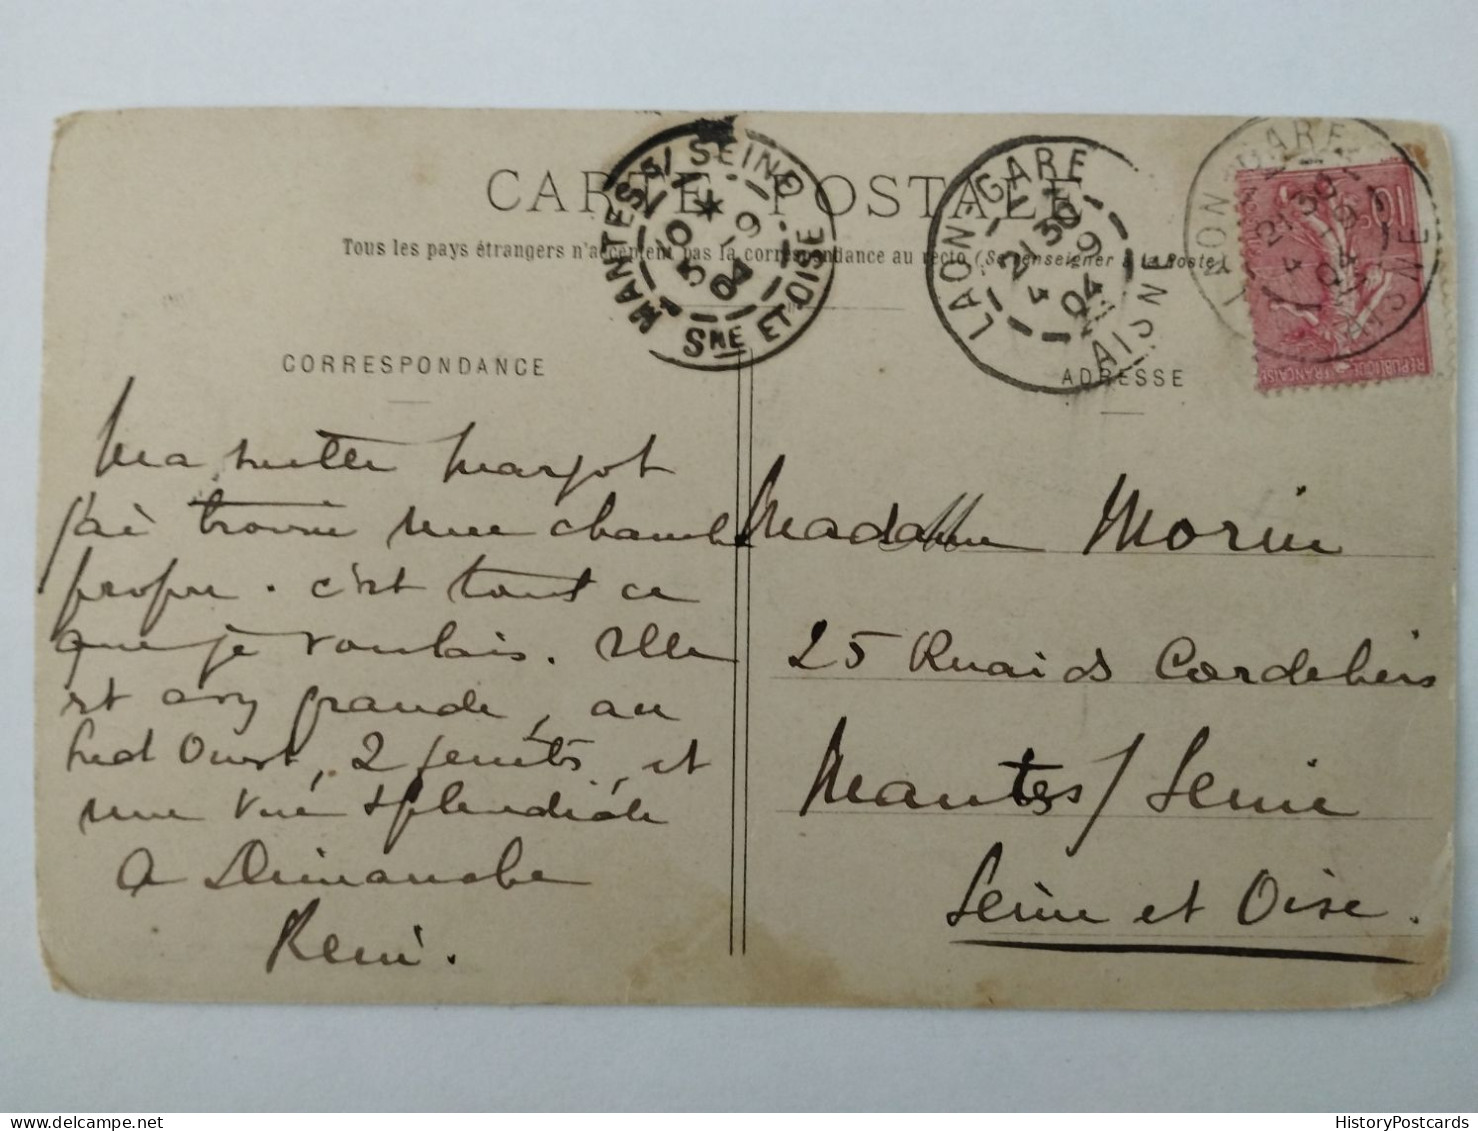 CARTE POSTALE
Tous les pays étrangers n'acceptent pas la correspondance au recto (Se renseigner à la Poste)
MANTES S/ SEINE
5 - 9
04
SNE ET OISE
LAON-GARE
21 30
4 - 9
04
AISNE
LAON-GARE
21 30
4 - 9
04
AISNE
10
REPUBLIQUE FRANÇAISE
CORRESPONDANCE
ADRESSE
Ma petite Margot
j'ai trouvé une chambre
propre. c'est tout ce
que je voulais. Elle
est assez grande, au
Sud Ouest, 2 fenêts, et
une vue splendide
A Dimanche
René.
Madame Morin
25 Quai ds Cordeliers
Mantes / Seine
Seine et Oise.
HistoryPostcards.com